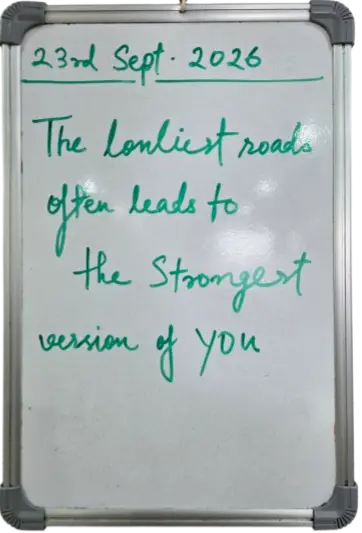 23rd Sept. 2026
The lonliest roads
often leads to
the Strongest
version of YOU